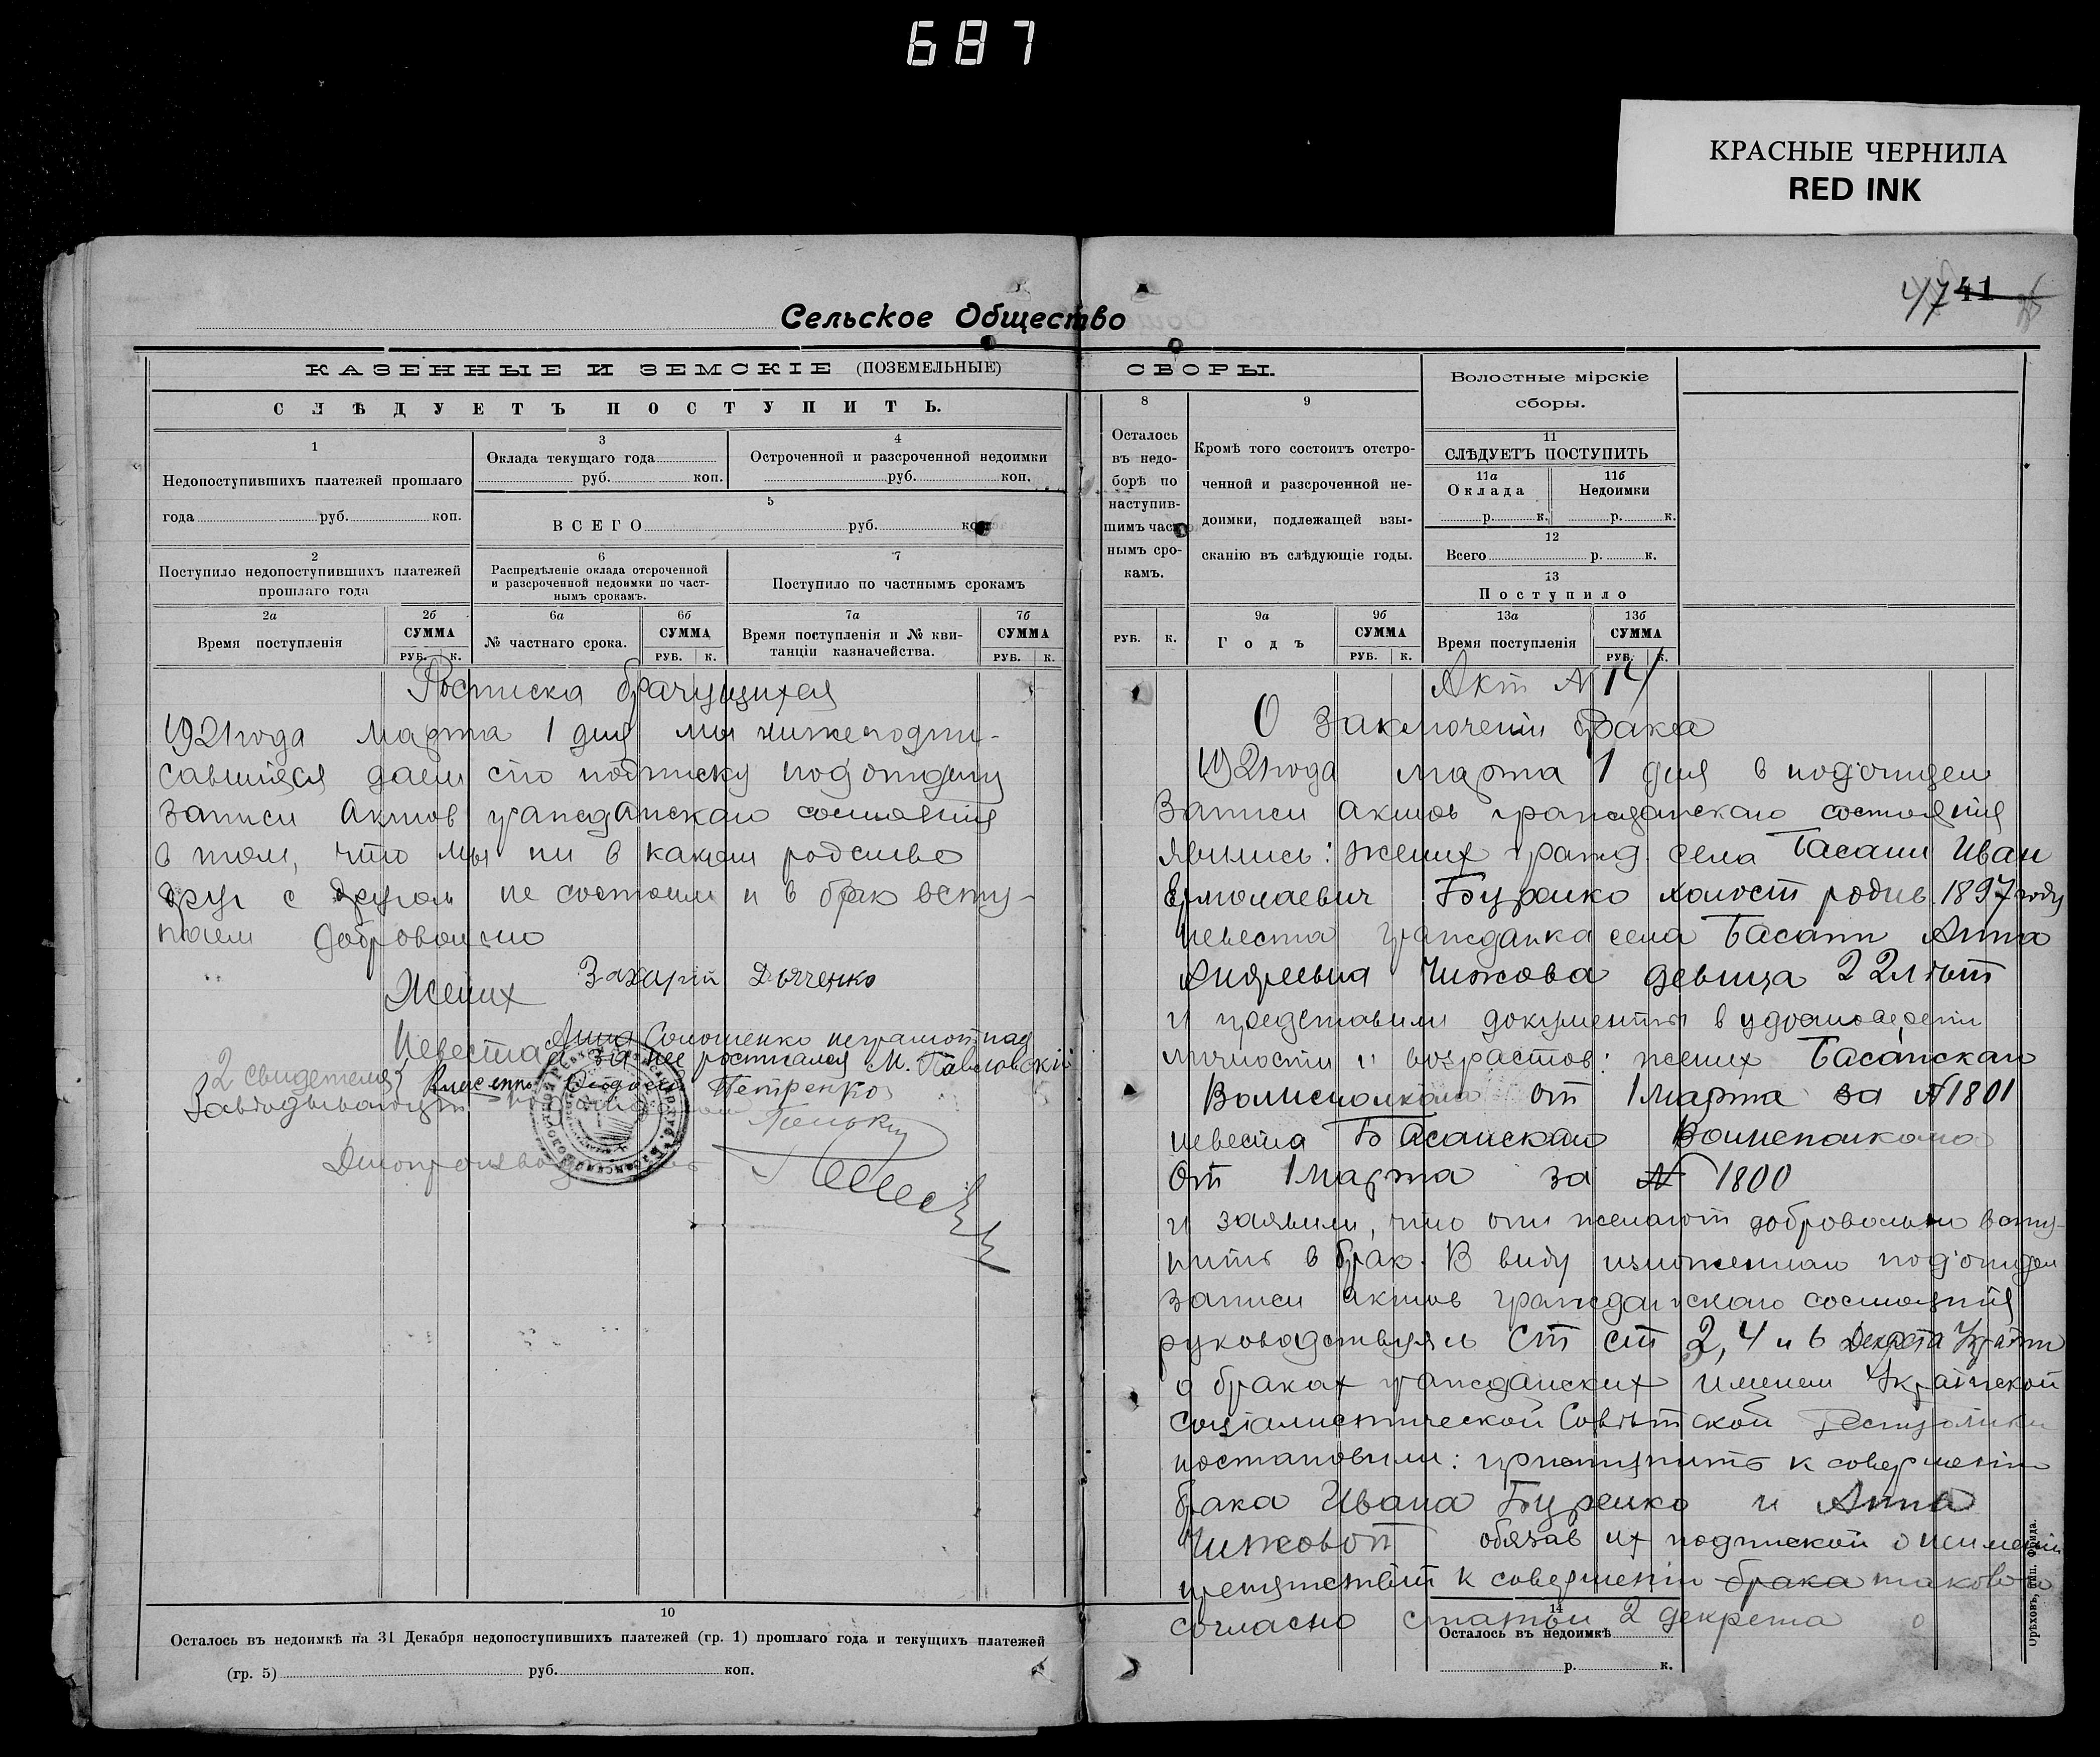 687
КРАСНЫЕ ЧЕРНИЛА
RED INK
47 41
Сельское Общество
КАЗЕННЫЕ И ЗЕМСКІЕ (ПОЗЕМЕЛЬНЫЕ)
СЛѢДУЕТЪ ПОСТУПИТЬ.
1
Недопоступившихъ платежей прошлаго
года руб. коп.
3
Оклада текущаго года
руб. коп.
4
Остроченной и разсроченной недоимки
руб. коп.
5
ВСЕГО руб. коп.
2
Поступило недопоступившихъ платежей
прошлаго года
6
Распредѣленіе оклада отсроченной
и разсроченной недоимки по част-
нымъ срокамъ.
7
Поступило по частнымъ срокамъ
2а
Время поступленія
2б
СУММА
РУБ. К.
6а
№ частнаго срока.
6б
СУММА
РУБ. К.
7а
Время поступленія и № кви-
танціи казначейства.
7б
СУММА
РУБ. К.
Росписка брачущихся
1921 года Марта 1 дня мы нижеподпи-
савшіяся даем сію подписку подотделу
записи Актов гражданскаго состоянія
в том, что мы ни в каком родстве
друг с другом не состоим и в брак всту-
паем добровольно
Жених Захарій Дьяченко
Невеста Анна Соношенко неграмотная
а за нее росписался М. Павловскій
2 свидетеля Петренко
Заведывающий
Делопроизводитель
10
Осталось въ недоимкѣ на 31 Декабря недопоступившихъ платежей (гр. 1) прошлаго года и текущихъ платежей
(гр. 5) руб. коп.
СБОРЫ.
Волостные мірскіе
сборы.
8
Осталось
въ недо-
борѣ по
наступив-
шимъ част-
нымъ сро-
камъ.
РУБ. К.
9
Кромѣ того состоитъ отстро-
ченной и разсроченной не-
доимки, подлежащей взы-
сканію въ слѣдующіе годы.
9а
Годъ
9б
СУММА
РУБ. К.
11
СЛѢДУЕТЪ ПОСТУПИТЬ
11а
Оклада
р. к.
11б
Недоимки
р. к.
12
Всего р. к.
13
Поступило
13а
Время поступленія
13б
СУММА
РУБ. К.
Акт № 14
О Заключеніи Брака
1921 года марта 1 дня в подотдел
Записи актов гражданскаго состоянія
явились: жених гражд. села Басани Иван
Ермолаевич Буренко холост родив. 1897 году
невеста гражданка села Басани Анна
Андреевна Чижова девица 22 лѣт
и представили документы в удостоверении
личности и возрастов: жених Басанскаго
Волисполкома от 1 марта за № 1801
невеста Басанскаго Волисполкома
от 1 марта за № 1800
и заявили, что они желают добровольно всту-
пить в брак. В виду изложеннаго подотдел
записи актов гражданскаго состоянія
руководствуясь ст ст 2, 4 и 6 Декрета
о браках гражданских именем Украінской
Соціалистической Совѣтской Республики
постановили: приступить к совершенію
брака Ивана Буренко и Анна
Чижовой обязав их подпиской о неимении
препятствій к совершенію брака таково
согласно статьи 2 декрета
14
Осталось въ недоимкѣ
р. к.
Орѣховъ, тип. Фрида.